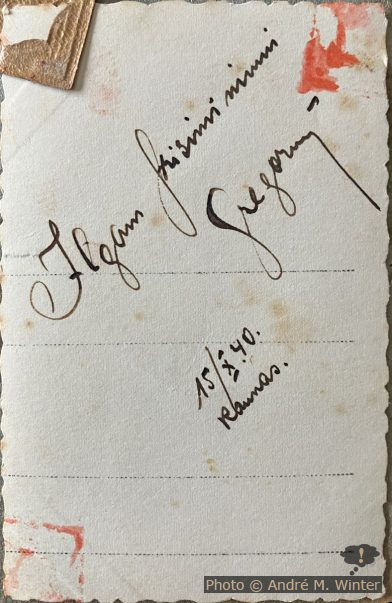 Ilgam prisiminimui
15/X.40.
Kaunas.
Photo © André M. Winter